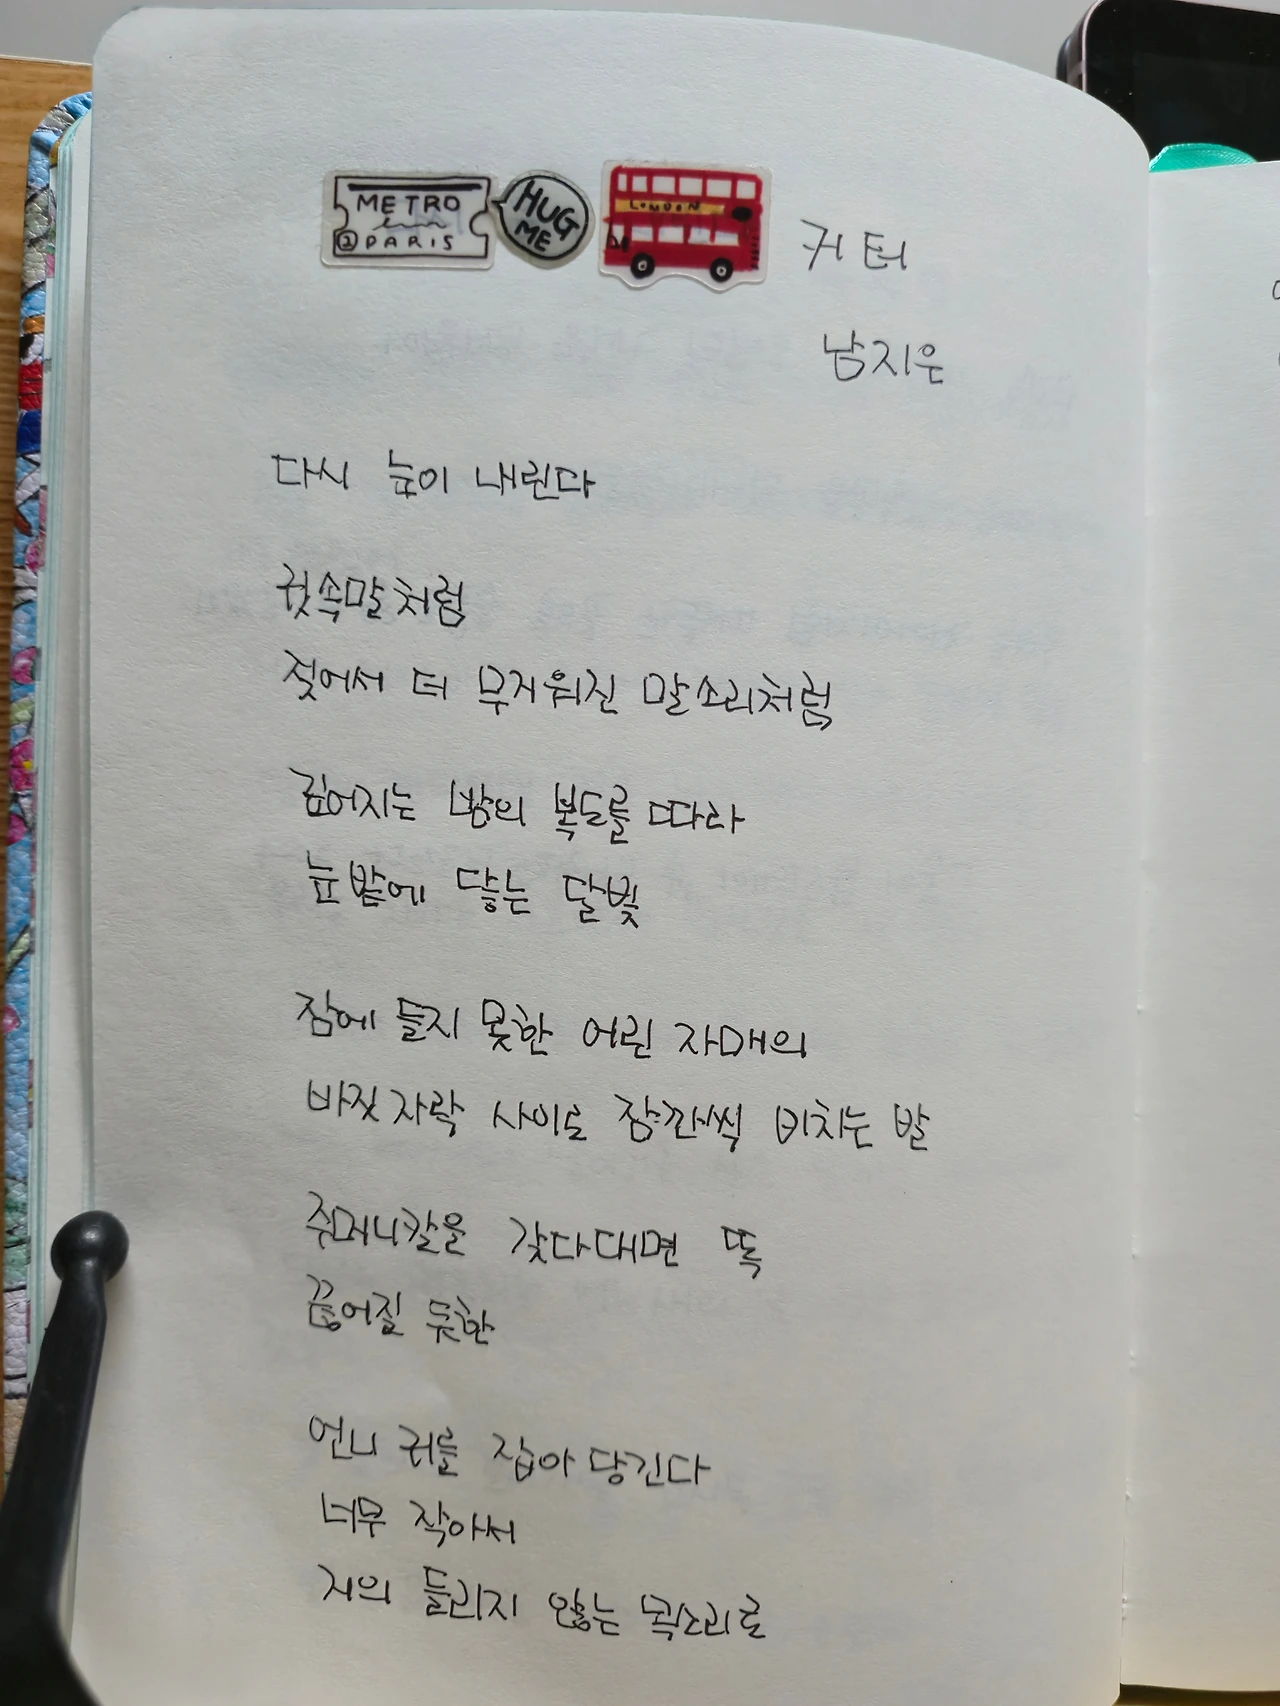 METRO
PARIS
HUG
ME
LONDON
커터
남지은
다시 눈이 내린다
귓속말처럼
젖어서 더 무거워진 말소리처럼
깊어지는 밤의 복도를 따라
눈밭에 닿는 달빛
잠에 들지 못한 어린 자매의
바짓자락 사이로 잠깐씩 비치는 발
주머니칼을 갖다대면 똑
끊어질 듯한
언니 귀를 잡아 당긴다
너무 작아서
거의 들리지 않는 목소리로